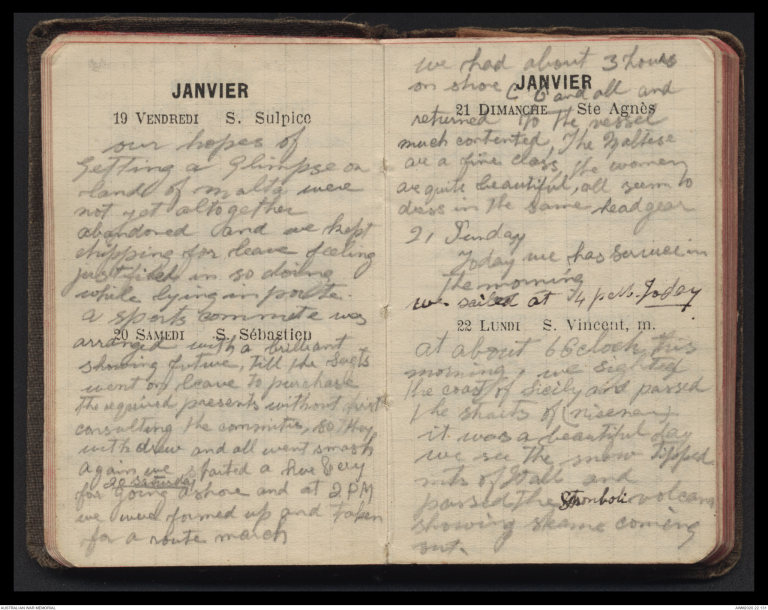 JANVIER
19 VENDREDI S. Sulpice
our hopes of
getting a glimpse on
land of malta were
not yet altogether
abandoned and we kept
chipping for leave feeling
justified in so doing
while lying in porte.
a sports commete was
20 SAMEDI S. Sébastien
arranged with a brilliant
showing future, till the Sargts
went on leave to purchase
the required presents without first
consulting the committe, so they
withdrew and all went smash
again we started a hue & cry
20 Saturday
for going ashore and at 2 PM
we were formed up and taken
for a route march
we had about 3 hours
on shoe C O and all and
JANVIER
21 DIMANCHE Ste Agnès
returned to the vessel
much contented, The Maltese
are a fine class, the women
are quite beautiful, all seem to
dress in the same headgear
21 Sunday
Today we has service in
the morning
we sailed at 4 p.m. Today
22 LUNDI S. Vincent, m.
at about 6 Oclock, this
morning, we sighted
the coast of Sicily and passed
the straits of (
it was a beautiful day
we see the snow tipped
mts of Itall and
passed the Stromboli volcano
showing skame coming
out.
AUSTRALIAN WAR MEMORIAL